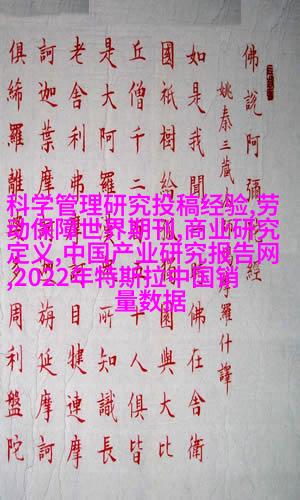 佛說阿彌經
姚秦三藏摩羅什譯
如是我聞佛在舍衛
國祇樹給園與大比
丘僧千二人俱皆
是大阿羅所知識長
老舍利弗目犍連摩
訶迦葉摩旃延摩訶
俱絺羅離多周利盤陀
科学管理研究投稿经验,劳
动保障世界期刊,商业研究
定义,中国产业研究报告网
,2022年特斯拉中国销
量数据